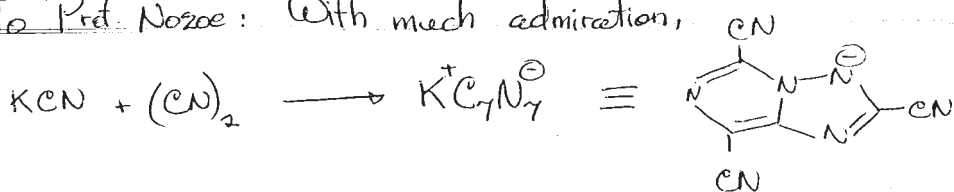 To Prof. Nozoe: With much admiration,
KCN + (CN)₂ ⟶ K⁺C₇N₇⊖ ≡
CN
N N N⊖
CN
N
CN